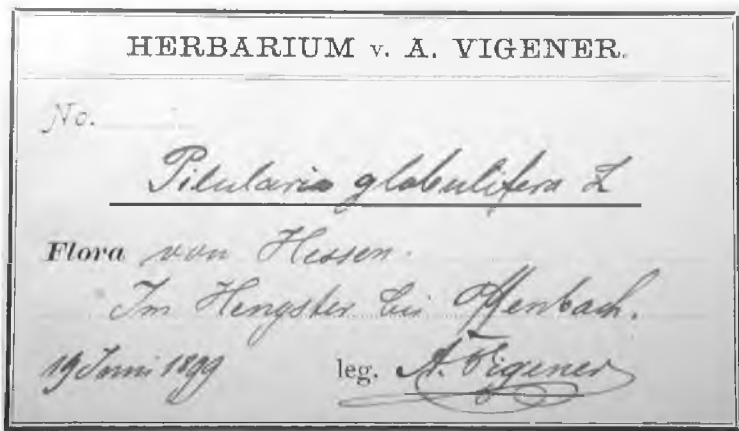 HERBARIUM v. A. VIGENER.
No.
Pilularia globulifera L
Flora von Hessen.
Im Hengster bei Offenbach.
19 Juni 1899 leg. A. Vigener